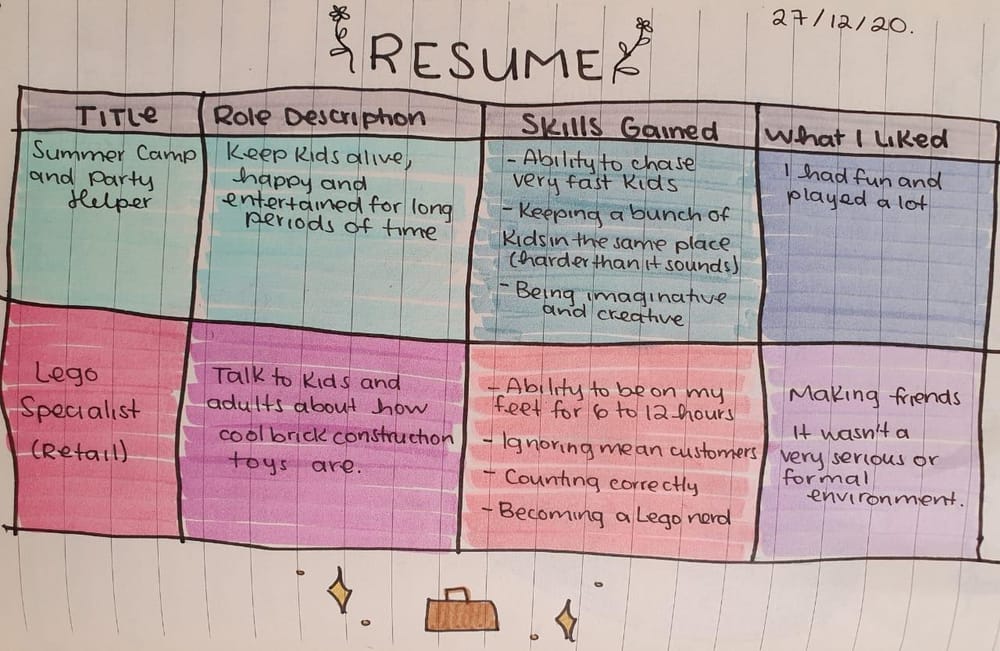 27/12/20.
RESUME
Title
Role Description
Skills Gained
What I Liked
Summer Camp
and Party
Helper
Keep kids alive,
happy and
entertained for long
periods of time
- Ability to chase
very fast kids
- Keeping a bunch of
kids in the same place
(harder than it sounds)
- Being imaginative
and creative
I had fun and
played a lot
Lego
Specialist
(Retail)
Talk to kids and
adults about how
cool brick construction
toys are.
- Ability to be on my
feet for 6 to 12 hours
- Ignoring mean customers
- Counting correctly
- Becoming a Lego nerd
Making friends
It wasn't a
very serious or
formal
environment.